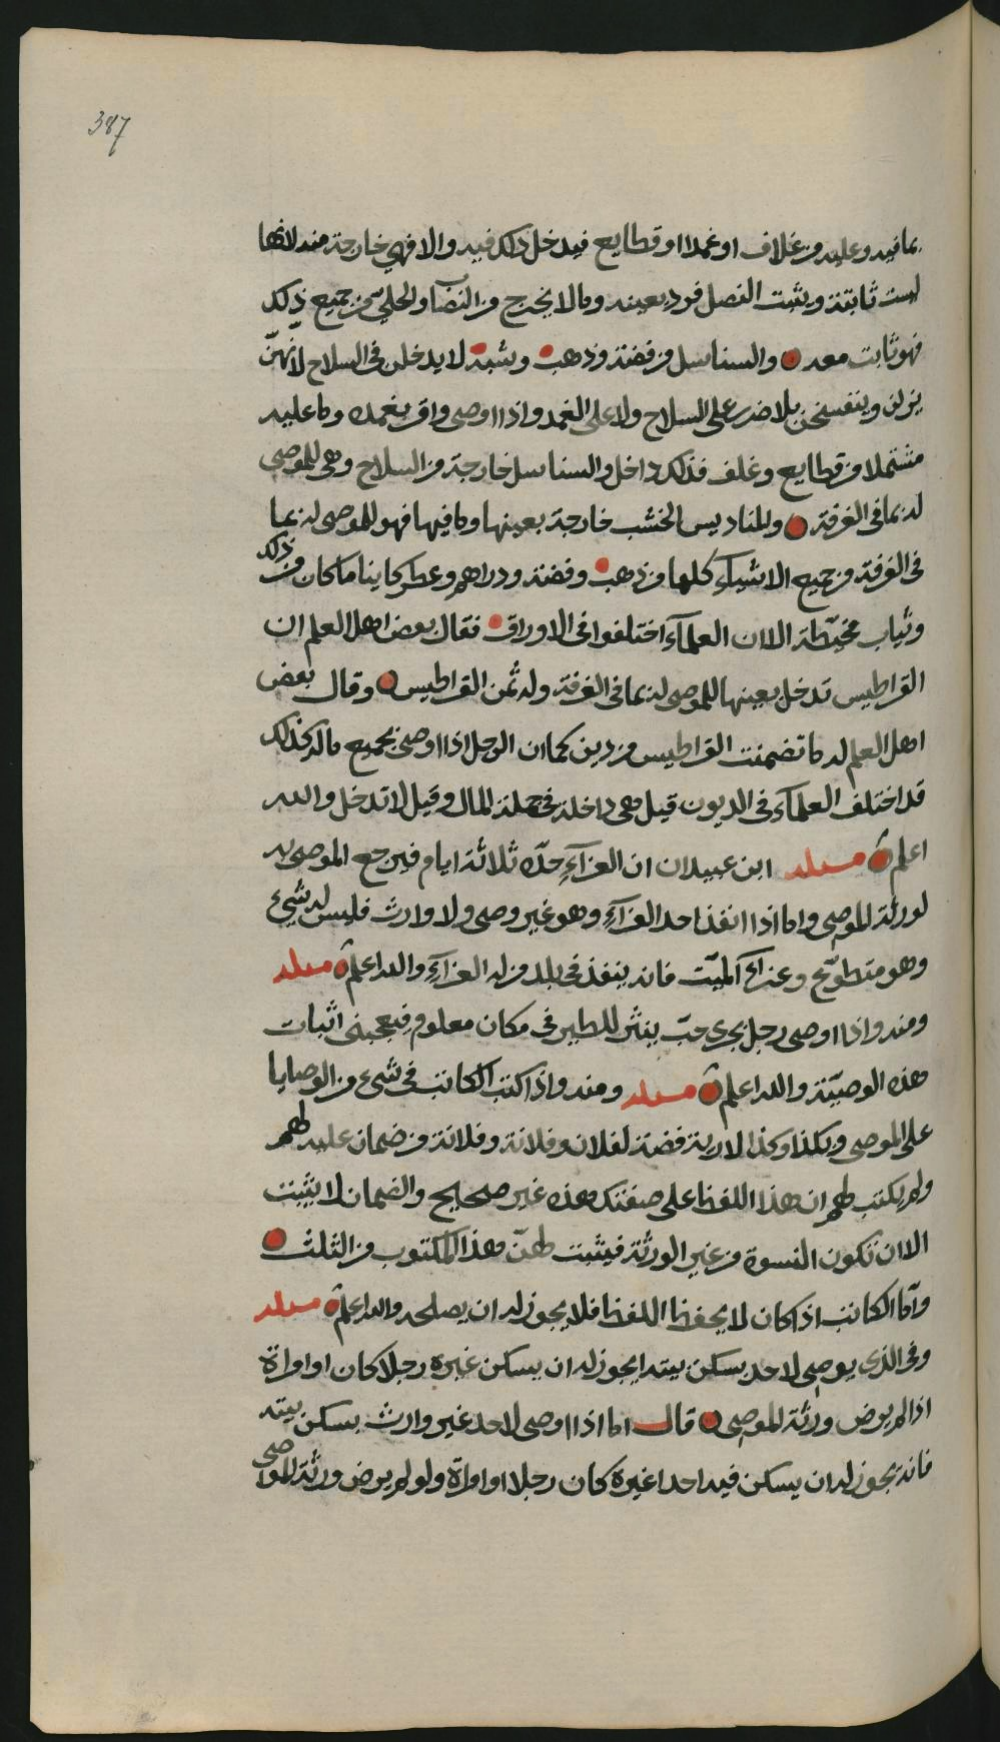 387
بما فيه وعليه من غلاف او غمدا او قطايع فيدخل ذلك فيه والا فهي خارجة منه لانها
ليست ثابتة ويثبت النصل فرد بعينه وما لا يخرج من النصاب والحلي من جميع ذلك
فهو ثابت معه والسناسل من فضة وذهب وشبة لا يدخلن في السلاح لأنهنّ
يزلن وينفسخن بلا ضرر على السلاح ولا على الغمد واذا اوصى واقر بغمده وما عليه
مشتملا من قطايع وغلف فذلك داخل والسناسل خارجة من السلاح وهي للموصى
له بما في الغرفة والمناديس الخشب خارجة بعينها وما فيها فهو للموصى له بما
في الغرفة من جميع الاشيآء كلها من ذهب وفضة ودراهم وعطر كاينا ما كان من ذلك
وثياب مخيّطة الا ان العلمآء اختلفوا في الاوراق فقال بعض اهل العلم ان
القراطيس تدخل بعينها للموصى له بما في الغرفة وله ثمن القراطيس وقال بعض
اهل العلم له ما تضمنت القراطيس من دين كما ان الرجل اذا اوصى بجميع ماله كذلك
قد اختلف العلمآء في الديون قيل هي داخلة في جملة المال وقيل لا تدخل والله
اعلم مسئله ابن عبيدان ان العزآء حدّه ثلاثة ايام فيرجع الموصى به
لورثة الموصي واما اذا انفذ احد العزآء وهو غير وصي ولا وارث فليس له شيء
وهو متطوّع وعزاء الميّت فانه ينفذ في بلد من له العزآء والله اعلم مسئله
ومنه واذا اوصى رجل بجري حبّ ينثر للطير في مكان معلوم فيعجبني اثبات
هذه الوصيّة والله اعلم مسئله ومنه واذا كتب الكاتب في شيء من الوصايا
على الموصي وبكذا وكذا لارية فضة لفلان وفلانة وفلانة من ضمان عليه لهم
ولم يكتب لهم ان هذا اللفظ على صفتك هذه غير صحيح والضمان لا يثبت
الا ان تكون النسوة من غير الورثة فيثبت لهنّ هذا المكتوب من الثلث
وأمّا الكاتب اذا كان لا يحفظ اللفظ فلا يجوز له ان يصلحه والله اعلم مسئله
وفي الذي يوصي لاحد بسكن بيته ايجوز له ان يسكن غيره رجلا كان او امراة
اذا لم يرض ورثة الموصي قال اما اذا اوصى لاحد غير وارث بسكن بيته
فانه يجوز له ان يسكن فيه احدا غيره كان رجلا او امراة ولو لم يرض ورثة الموصي